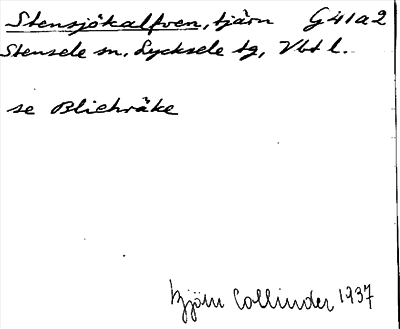 Stensjökalfven, tjärn G 41 a 2
Stensele sn, Lycksele tg, Vbt l.
se Blichråke
Björn Collinder 1937